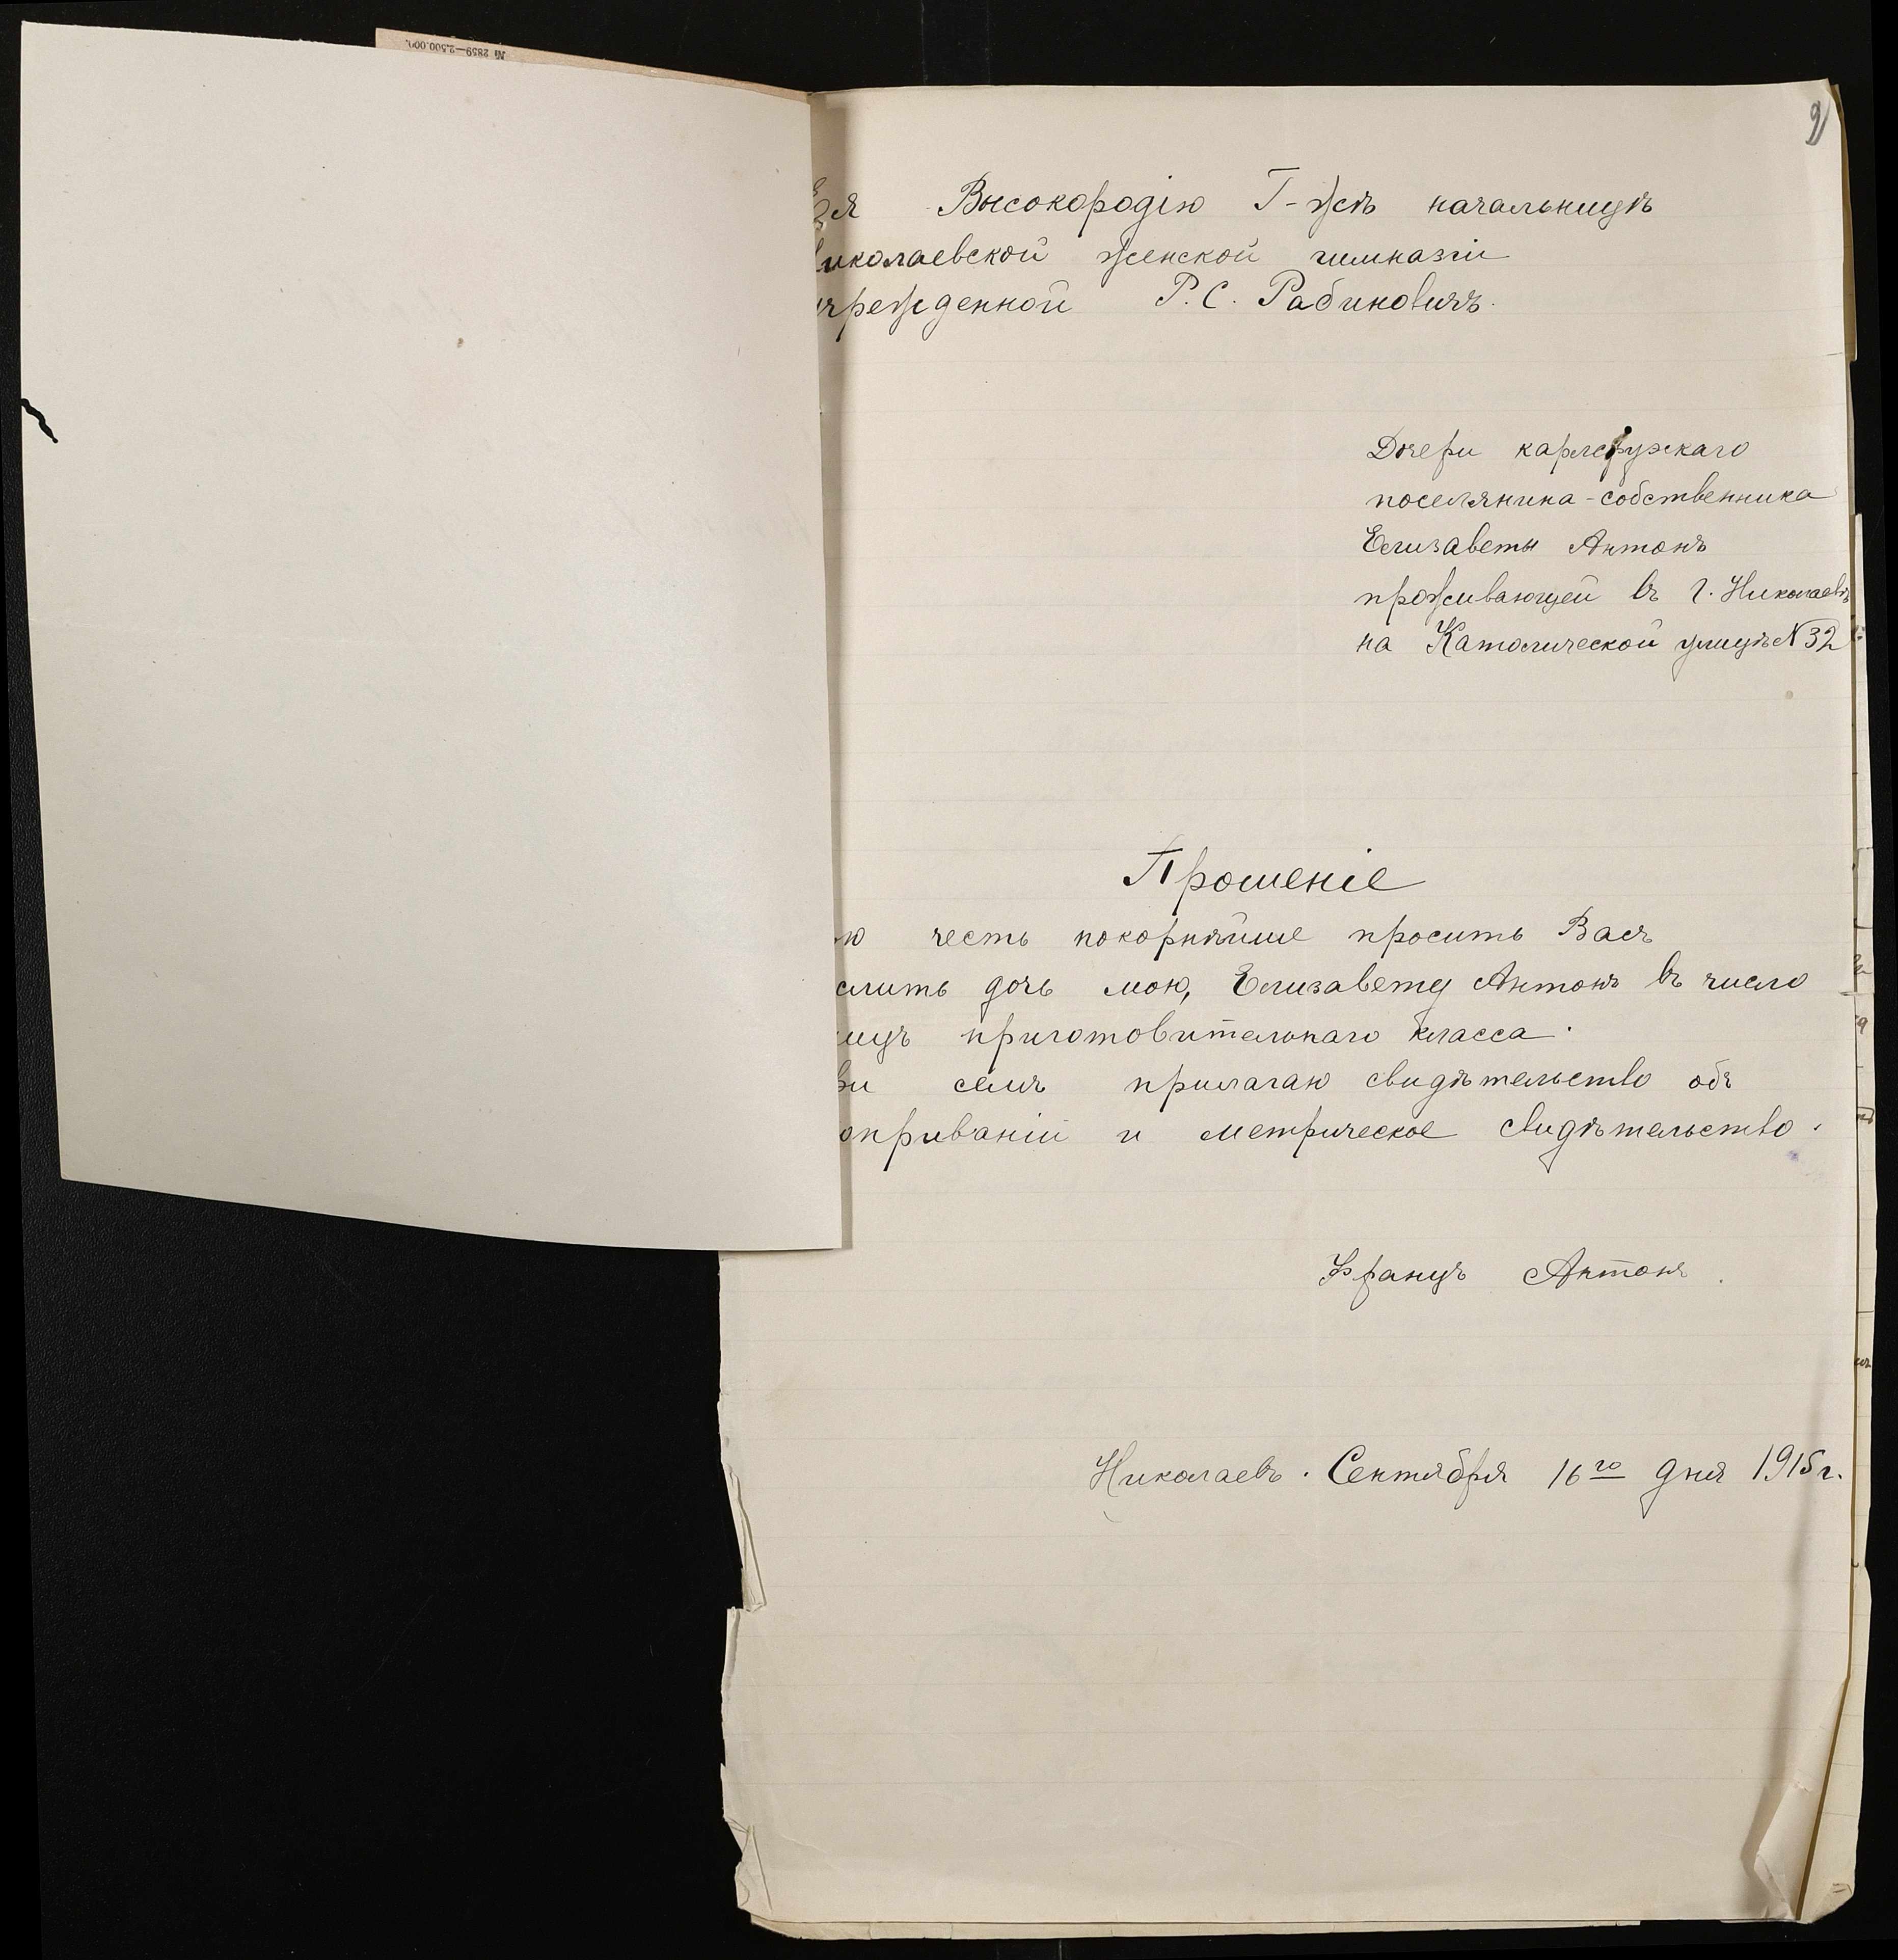 № 2859—2.500.000.
9
Ея Высокородію Г-жѣ начальницѣ
иколаевской женской гимназіи
чрежденной Р. С. Рабиновичъ.
Дочери карлсружскаго
поселянина-собственника
Елизаветы Антонъ
проживающей въ г. Николаевѣ
на Католической улицѣ № 32
Прошеніе
ю честь покорнѣйше просить Васъ
слить дочь мою, Елизавету Антонъ въ число
ицъ приготовительнаго класса.
ри семъ прилагаю свидѣтельство объ
опрививаніи и метрическое свидѣтельство.
Францъ Антонъ.
Николаевъ. Сентября 16го дня 1915 г.